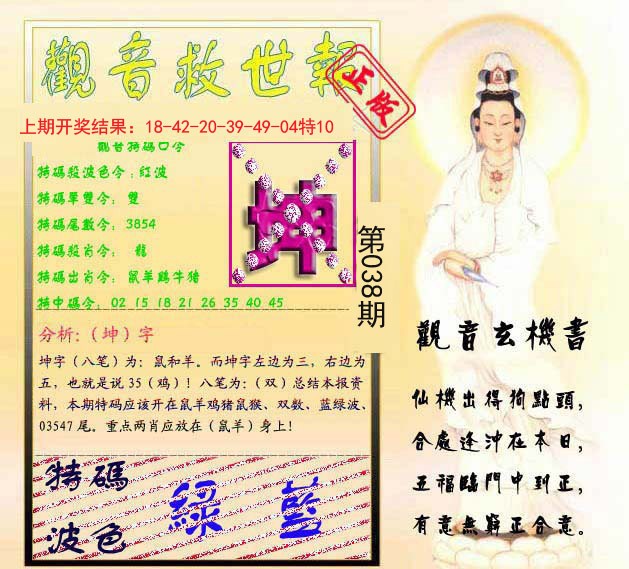 觀音救世報
正版
上期开奖结果：18-42-20-39-49-04特10
觀音特碼口令
特碼殺波色令：紅波
特碼單雙令： 雙
特碼尾數令： 3854
特碼殺肖令： 龍
特碼出肖令： 鼠羊鷄牛猪
特中碼令： 02 15 18 21 26 35 40 45
坤
第038期
分析：（坤）字
坤字（八笔）为：鼠和羊。而坤字左边为三，右边为
五，也就是说 35（鸡）！八笔为：（双）总结本报资
料，本期特码应该开在鼠羊鸡猪鼠猴、双数、蓝绿波、
03547 尾。重点两肖应放在（鼠羊）身上！
特碼
波色
綠 藍
觀音玄機書
仙機出得狗點頭，
合處逢沖在本日，
五福臨門中到正，
有意無辭正合意。